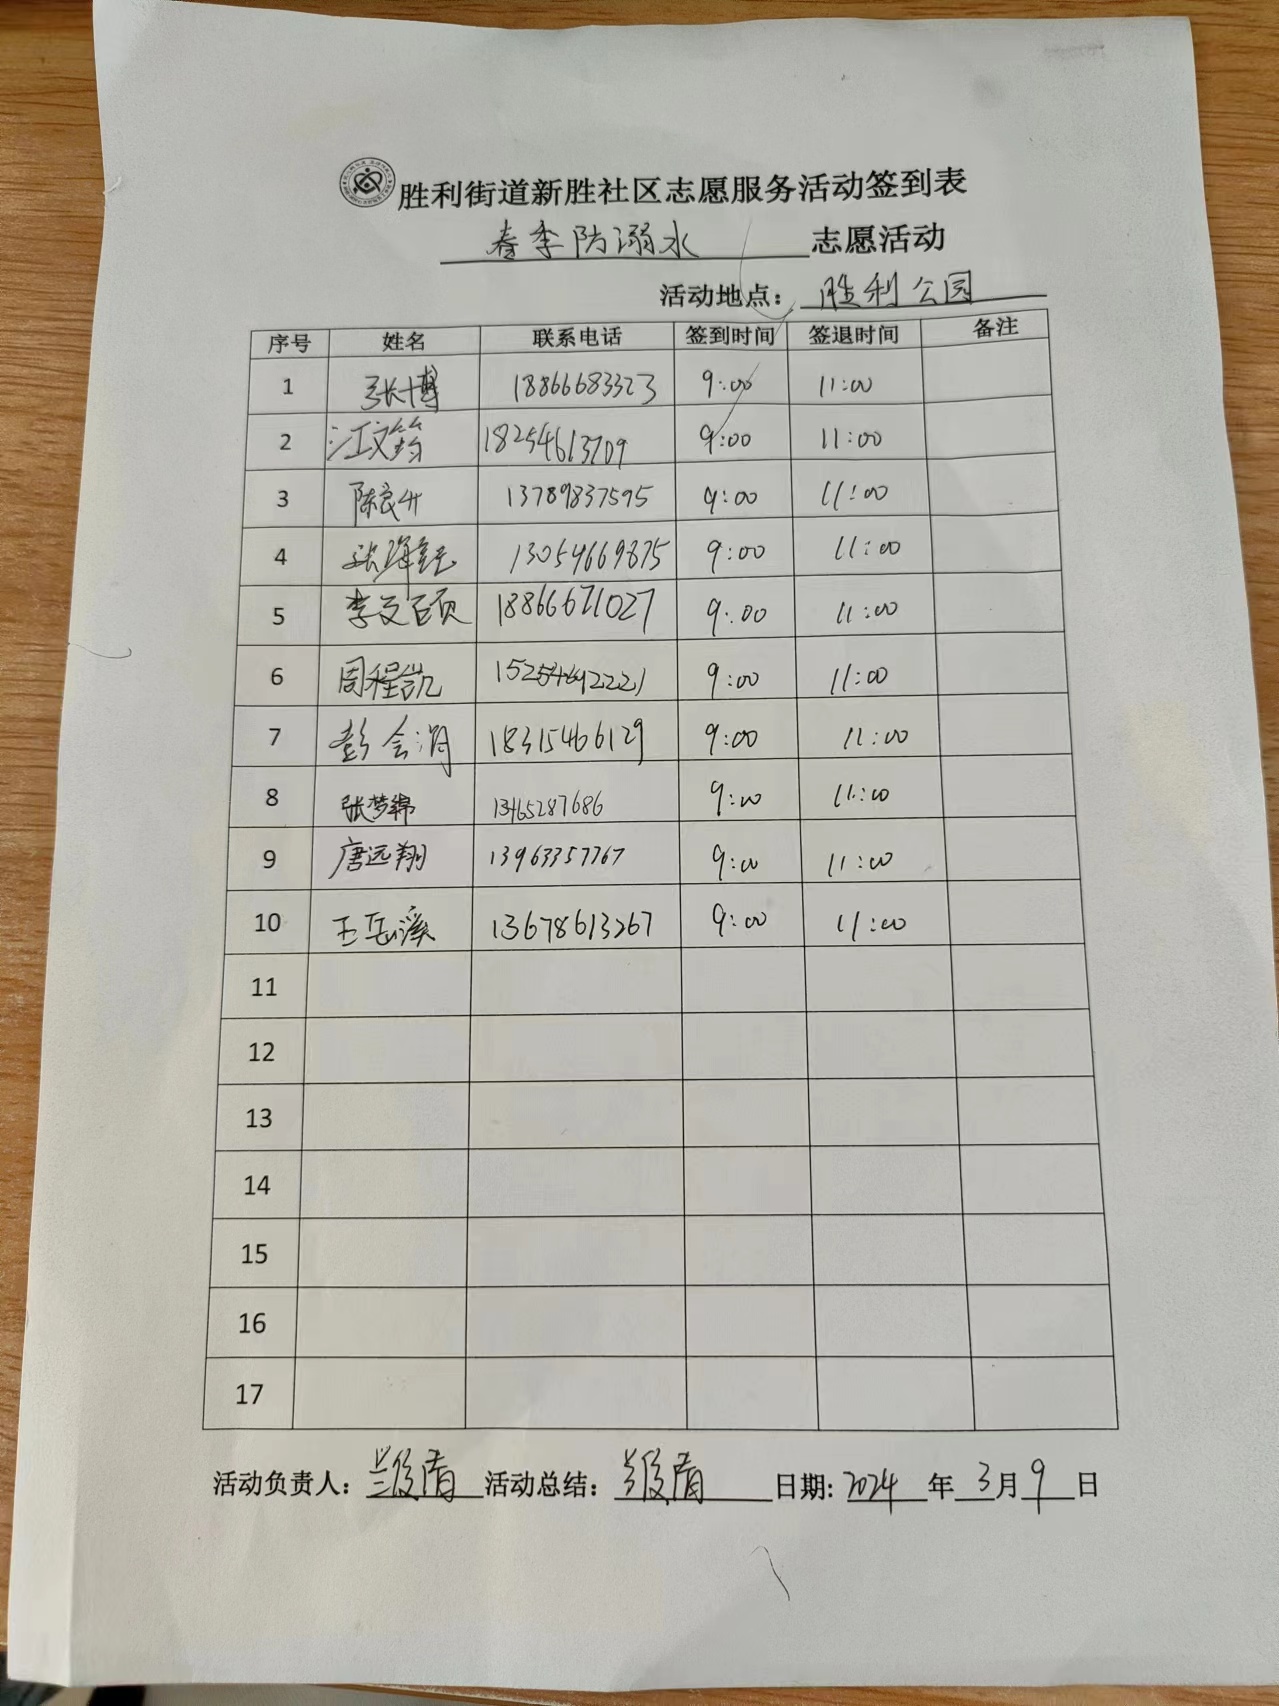 胜利街道新胜社区志愿服务活动签到表
春季防溺水 志愿活动
活动地点：胜利公园
序号 姓名 联系电话 签到时间 签退时间 备注
1 张博 18866683323 9:00 11:00
2 江文筠 18254613709 9:00 11:00
3 陈良升 13789837595 9:00 11:00
4 张海钰 13054669875 9:00 11:00
5 李文硕 18866671027 9:00 11:00
6 周程凯 15254692221 9:00 11:00
7 彭会消 18315466129 9:00 11:00
8 张梦锦 13465287686 9:00 11:00
9 唐远翔 13963357767 9:00 11:00
10 王岳溪 13678613267 9:00 11:00
11
12
13
14
15
16
17
活动负责人： 活动总结： 日期: 2024 年 3 月 9 日